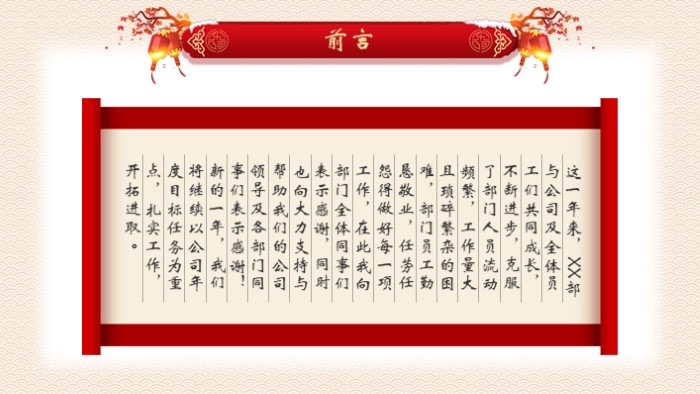 前言
这一年来，XX部
与公司及全体员
工们共同成长，
不断进步，克服
了部门人员流动
频繁，工作量大
且琐碎繁杂的困
难，部门员工勤
恳敬业，任劳任
怨得做好每一项
工作，在此我向
部门全体同事们
表示感谢，同时
也向大力支持与
帮助我们的公司
领导及各部门同
事们表示感谢！
新的一年，我们
将继续以公司年
度目标任务为重
点，扎实工作，
开拓进取。